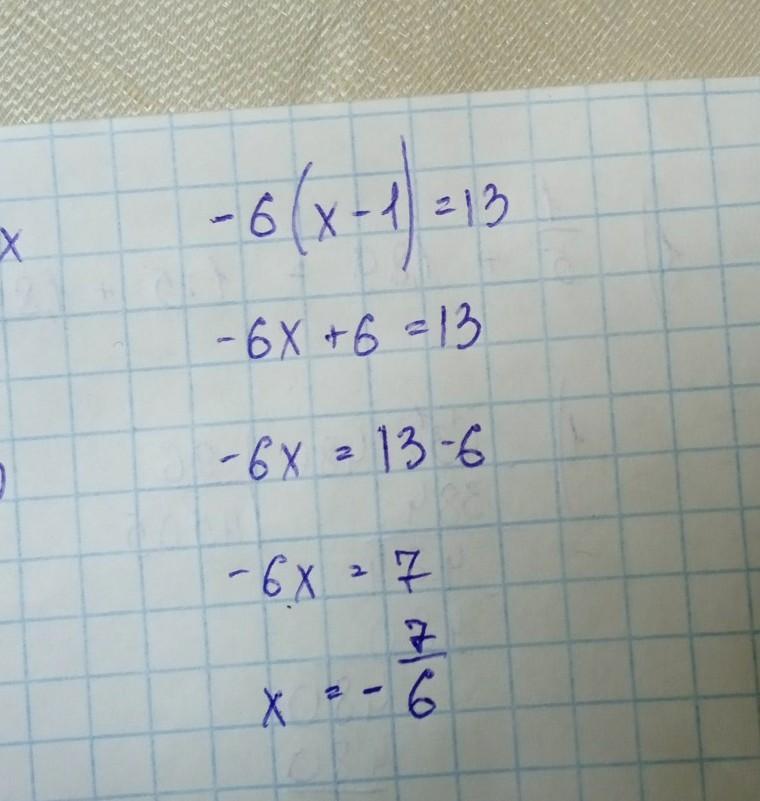 x
-6(x-1)=13
-6x+6=13
-6x=13-6
-6x=7
x=-7/6